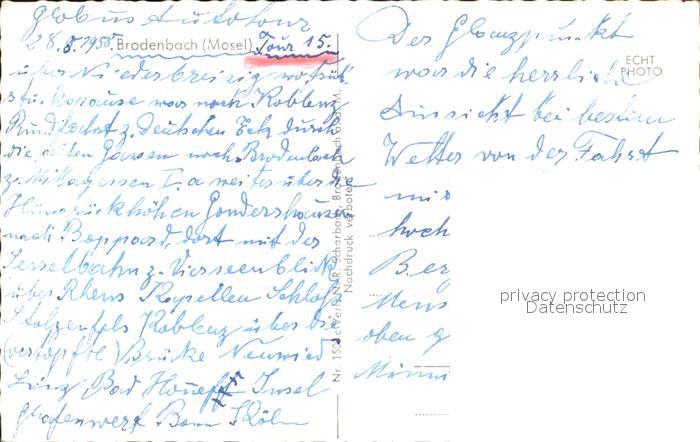 Globus Autotour
28.8.1958. Brodenbach (Mosel) Tour 15.
über Niederbreisig wo Früh-
stü. Kopause war nach Koblenz
Rundfahrt z. Deutschen Eck durch
die alten Gassen nach Brodenbach
z. Mittagessen I.a weiter über die
Hunsrückhöhen Gondershausen
nach Boppard, dort mit der
Sesselbahn z. Vierseenblick
über Rhens Kapellen Schloß
Stolzenfels Koblenz über die
(verstopfte) Brücke Neuwied
Linz, Bad Honeff Insel
Grafenwerf Bonn Köln
Nr. 150 Verl. Scharbach, Brodenbach a. d. M.
Nachdruck verboten
Der Glanzpunkt
war die herrliche
Aussicht bei bestem
Wetter von der Fahrt
mi
hoch
Ber
Mens
oben g
ECHT
PHOTO
privacy protection
Datenschutz